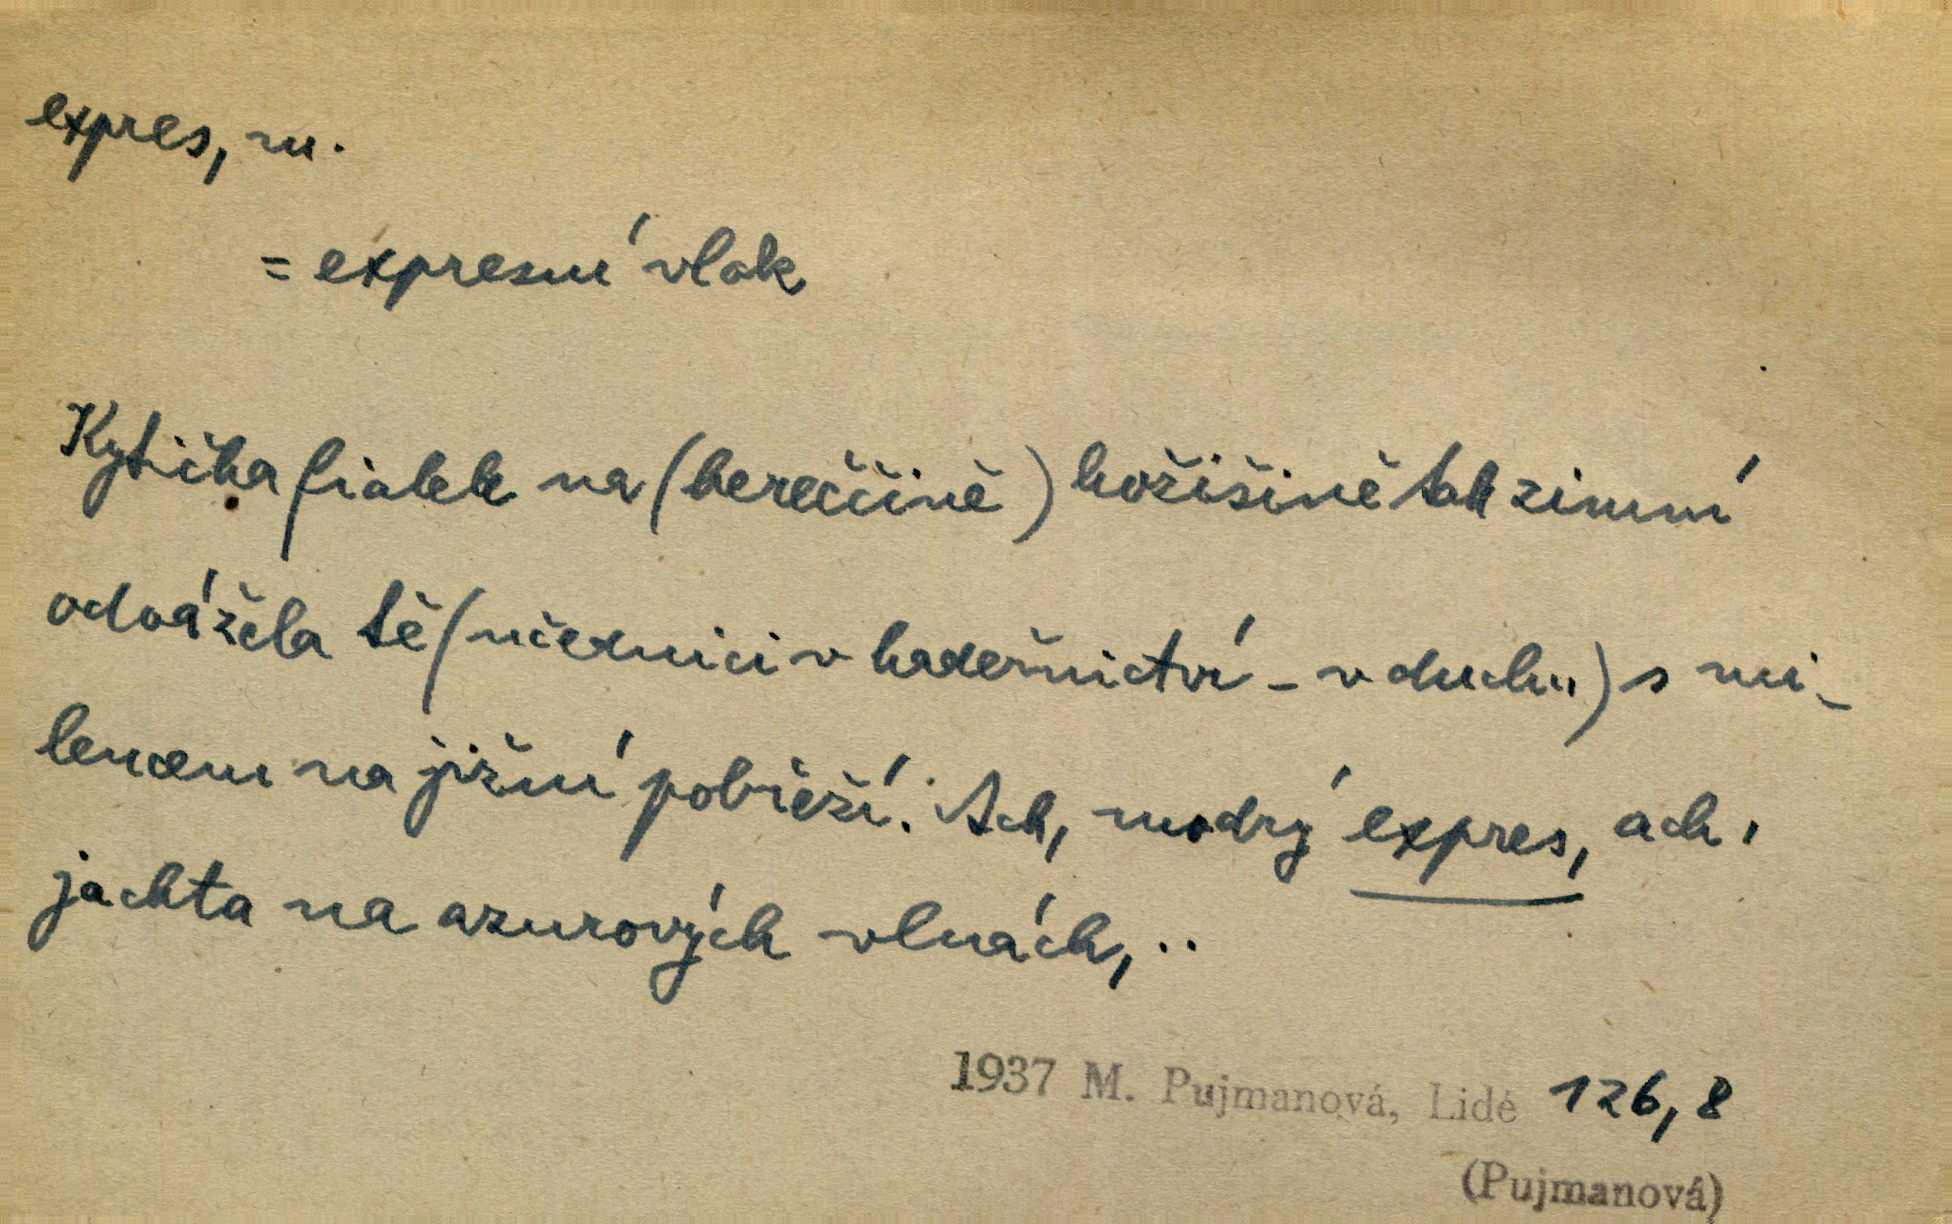 expres, m.
= expresní vlak
Kytička fialek na (herečcině) kožišině tak zimní
odvážela tě (učednici v kadeřnictví - v duchu) s mi-
lencem na jižní pobřeží. Ach, modrý expres, ach,
jachta na azurových vlnách, ..
1937 M. Pujmanová, Lidé 126, 8
(Pujmanová)